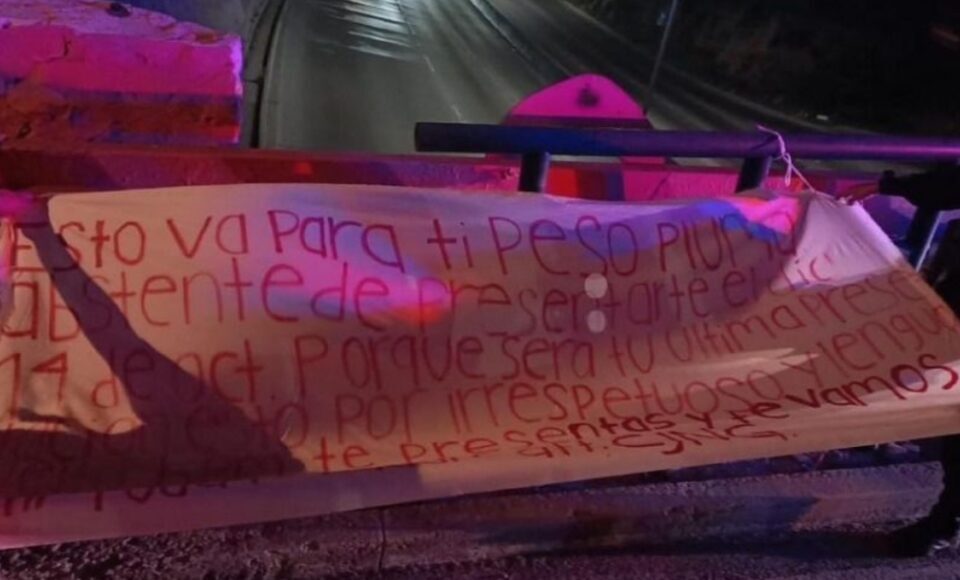 Esto va para ti Peso Pluma
abstente de presentarte el dia
14 de oct. Porque sera tu ultima prese
esto por irrespetuoso y lengu
te presentas y te vamos
CJNG.